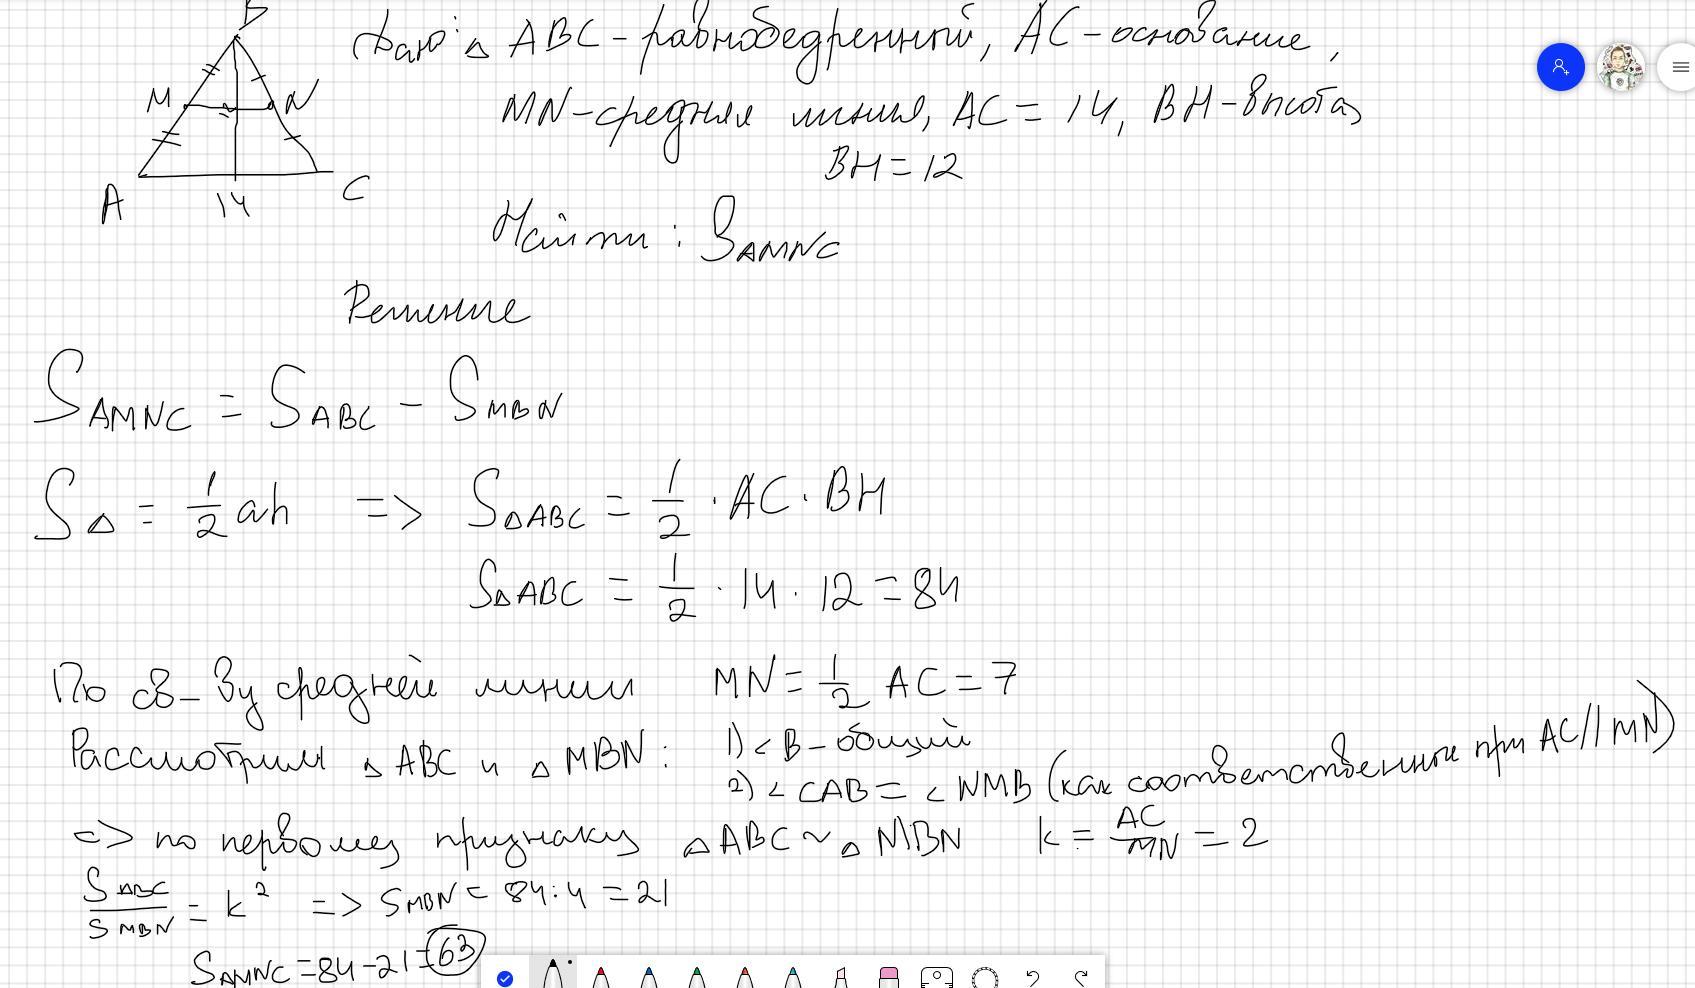 B
Дано: △ ABC - равнобедренный, AC - основание,
M N
MN - средняя линия, AC = 14, BH - высота,
BH = 12
A 14 C
Найти: S AMNC
Решение
S AMNC = S ABC - S MBN
S △ = 1/2 ah => S △ABC = 1/2 · AC · BH
S △ABC = 1/2 · 14 · 12 = 84
По св-ву средней линии MN = 1/2 AC = 7
Рассмотрим △ ABC и △ MBN: 1) < B - общий
2) < CAB = < NMB (как соответственные при AC // MN)
=> по первому признаку △ ABC ~ △ MBN k = AC/MN = 2
S ABC / S MBN = k² => S MBN = 84 : 4 = 21
S AMNC = 84 - 21 = 63